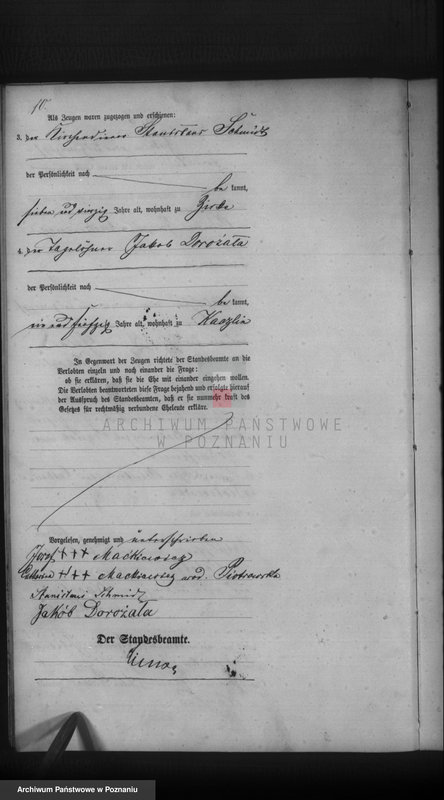 10.
Als Zeugen waren zugezogen und erschienen:
3. der Kirchendiener Stanislaus Schmidt
der Persönlichkeit nach
be kannt,
sieben und vierzig Jahre alt, wohnhaft zu Zirke
4. der Tagelöhner Jakob Dorożala
der Persönlichkeit nach
be kannt,
ein und fünfzig Jahre alt, wohnhaft zu Kaczlin
In Gegenwart der Zeugen richtete der Standesbeamte an die
Verlobten einzeln und nach einander die Frage:
ob sie erklären, daß sie die Ehe mit einander eingehen wollen.
Die Verlobten beantworteten diese Frage bejahend und erfolgte hierauf
der Ausspruch des Standesbeamten, daß er sie nunmehr kraft des
Gesetzes für rechtmäßig verbundene Eheleute erkläre.
ARCHIWUM PAŃSTWOWE
W POZNANIU
Vorgelesen, genehmigt und unterschrieben
+++ Maćkowiak
+++ Maćkowiak Piotrowska
Stanislaus Schmidt
Jakób Dorożala
Der Standesbeamte.
Archiwum Państwowe w Poznaniu